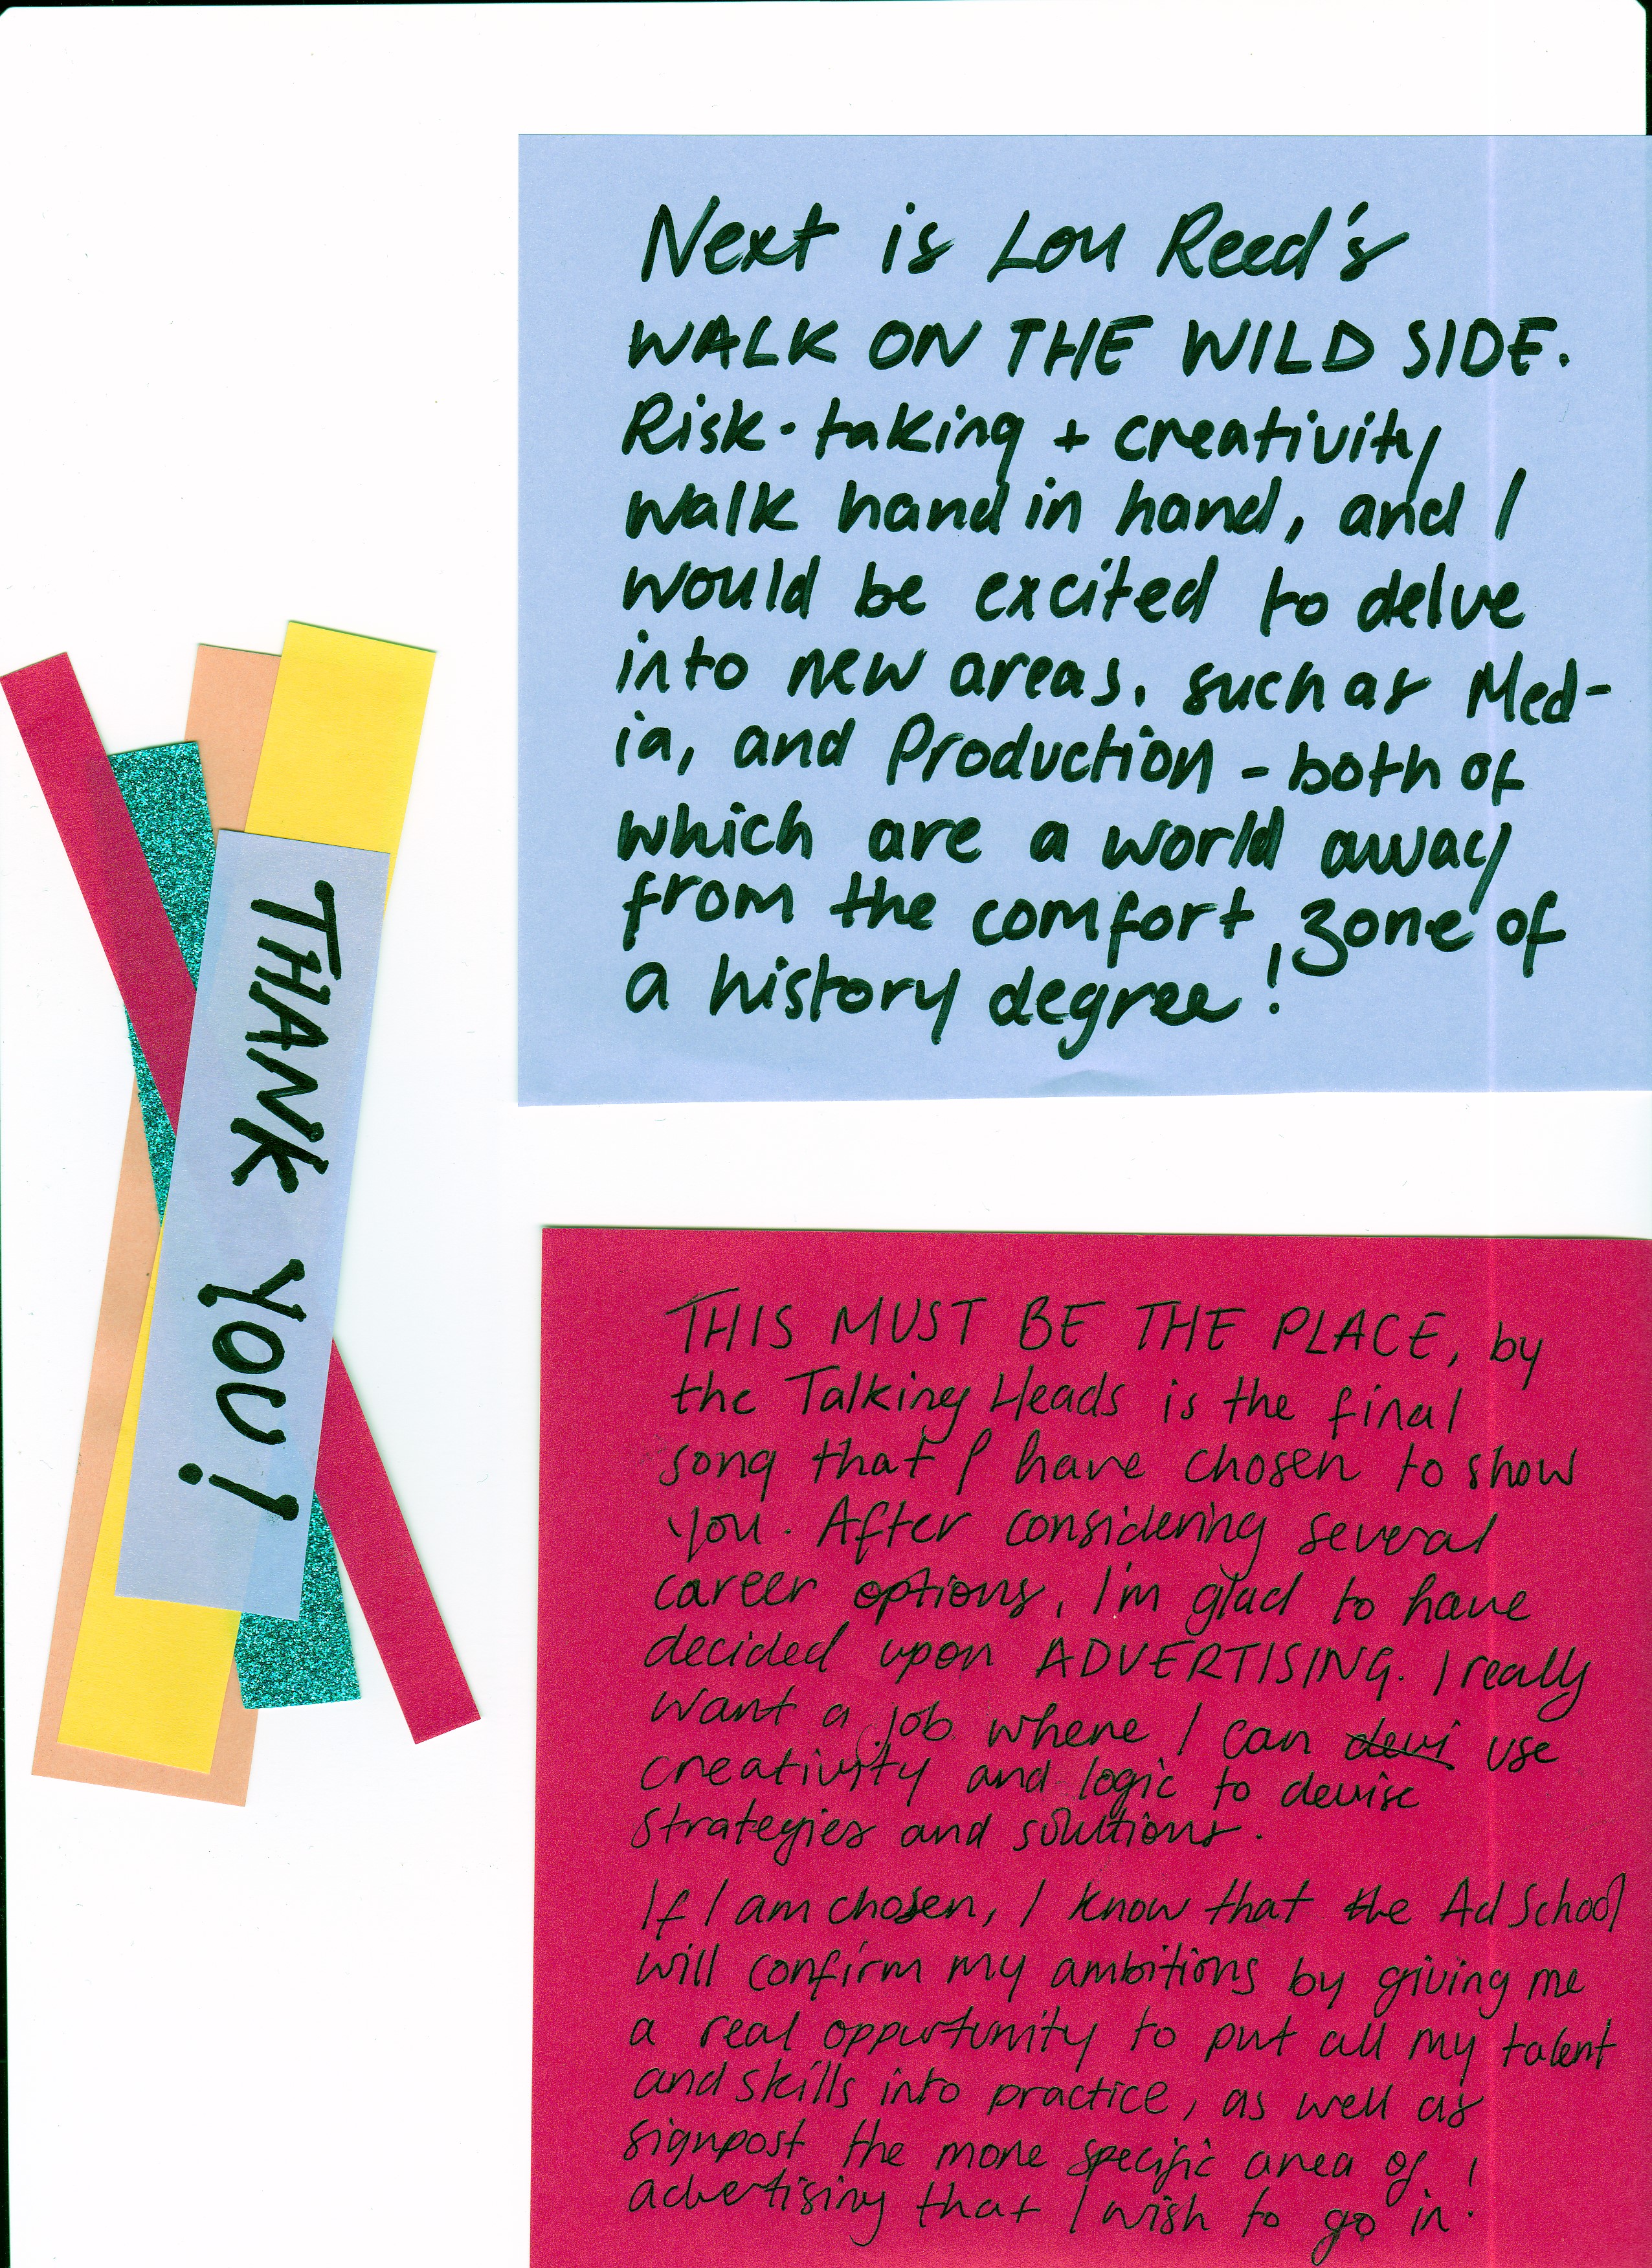 Next is Lou Reed's
WALK ON THE WILD SIDE.
Risk-taking + creativity
walk hand in hand, and I
would be excited to delve
into new areas, such as Med-
ia, and Production - both of
which are a world away
from the comfort zone of
a history degree!
THANK YOU!
THIS MUST BE THE PLACE, by
the Talking Heads is the final
song that I have chosen to show
you. After considering several
career options, I'm glad to have
decided upon ADVERTISING. I really
want a job where I can devi use
creativity and logic to devise
strategies and solutions.
If I am chosen, I know that the Ad School
will confirm my ambitions by giving me
a real opportunity to put all my talent
and skills into practice, as well as
signpost the more specific area of
advertising that I wish to go in!